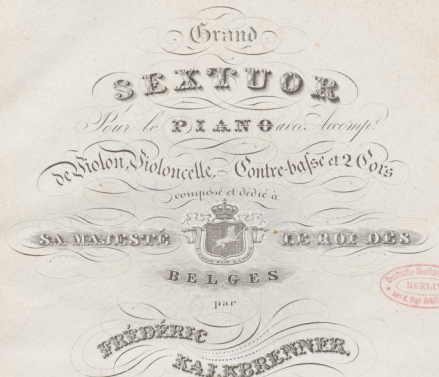 Grand
SEXTUOR
Pour le PIANO avec Accompt
de Violon, Violoncelle, Contre-basse et 2 Cors
composé et dédié à
SA MAJESTÉ LE ROI DES
BELGES
par
FRÉDÉRIC
KALKBRENNER.
BERLIN